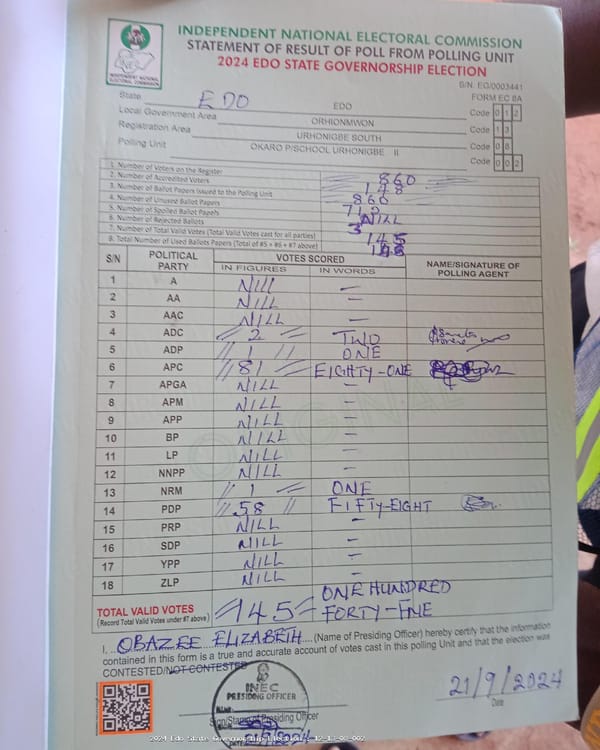 INEC
INDEPENDENT NATIONAL ELECTORAL COMMISSION
INDEPENDENT NATIONAL ELECTORAL COMMISSION
STATEMENT OF RESULT OF POLL FROM POLLING UNIT
2024 EDO STATE GOVERNORSHIP ELECTION
S/N. EG/0003441
FORM EC 8A
State EDO EDO Code 0 1 2
Local Government Area ORHIONMWON Code 1 3
Registration Area URHONIGBE SOUTH Code 0 8
Polling Unit OKARO P/SCHOOL URHONIGBE II Code 0 0 2
1. Number of Voters on the Register 860
2. Number of Accredited Voters 148
3. Number of Ballot Papers Issued to the Polling Unit 860
4. Number of Unused Ballot Papers 712
5. Number of Spoiled Ballot Papers NILL
6. Number of Rejected Ballots 3
7. Number of Total Valid Votes (Total Valid Votes cast for all parties) 145
8. Total Number of Used Ballots Papers (Total of #5 + #6 + #7 above) 148
S/N POLITICAL PARTY VOTES SCORED NAME/SIGNATURE OF POLLING AGENT
IN FIGURES IN WORDS
1 A NILL —
2 AA NILL —
3 AAC NILL —
4 ADC // 2 // TWO
5 ADP // 1 // ONE
6 APC // 81 // EIGHTY-ONE
7 APGA NILL —
8 APM NILL —
9 APP NILL —
10 BP NILL —
11 LP NILL —
12 NNPP NILL —
13 NRM // 1 // ONE
14 PDP // 58 // FIFTY-EIGHT
15 PRP NILL —
16 SDP NILL —
17 YPP NILL —
18 ZLP NILL —
TOTAL VALID VOTES
(Record Total Valid Votes under #7 above)
// 145 // ONE HUNDRED
FORTY-FIVE
I, OBAZEE ELIZABETH (Name of Presiding Officer) hereby certify that the information
contained in this form is a true and accurate account of votes cast in this polling Unit and that the election was
CONTESTED/NOT CONTESTED
INEC
PRESIDING OFFICER
Sign/Stamp of Presiding Officer
21/9/2024
Date